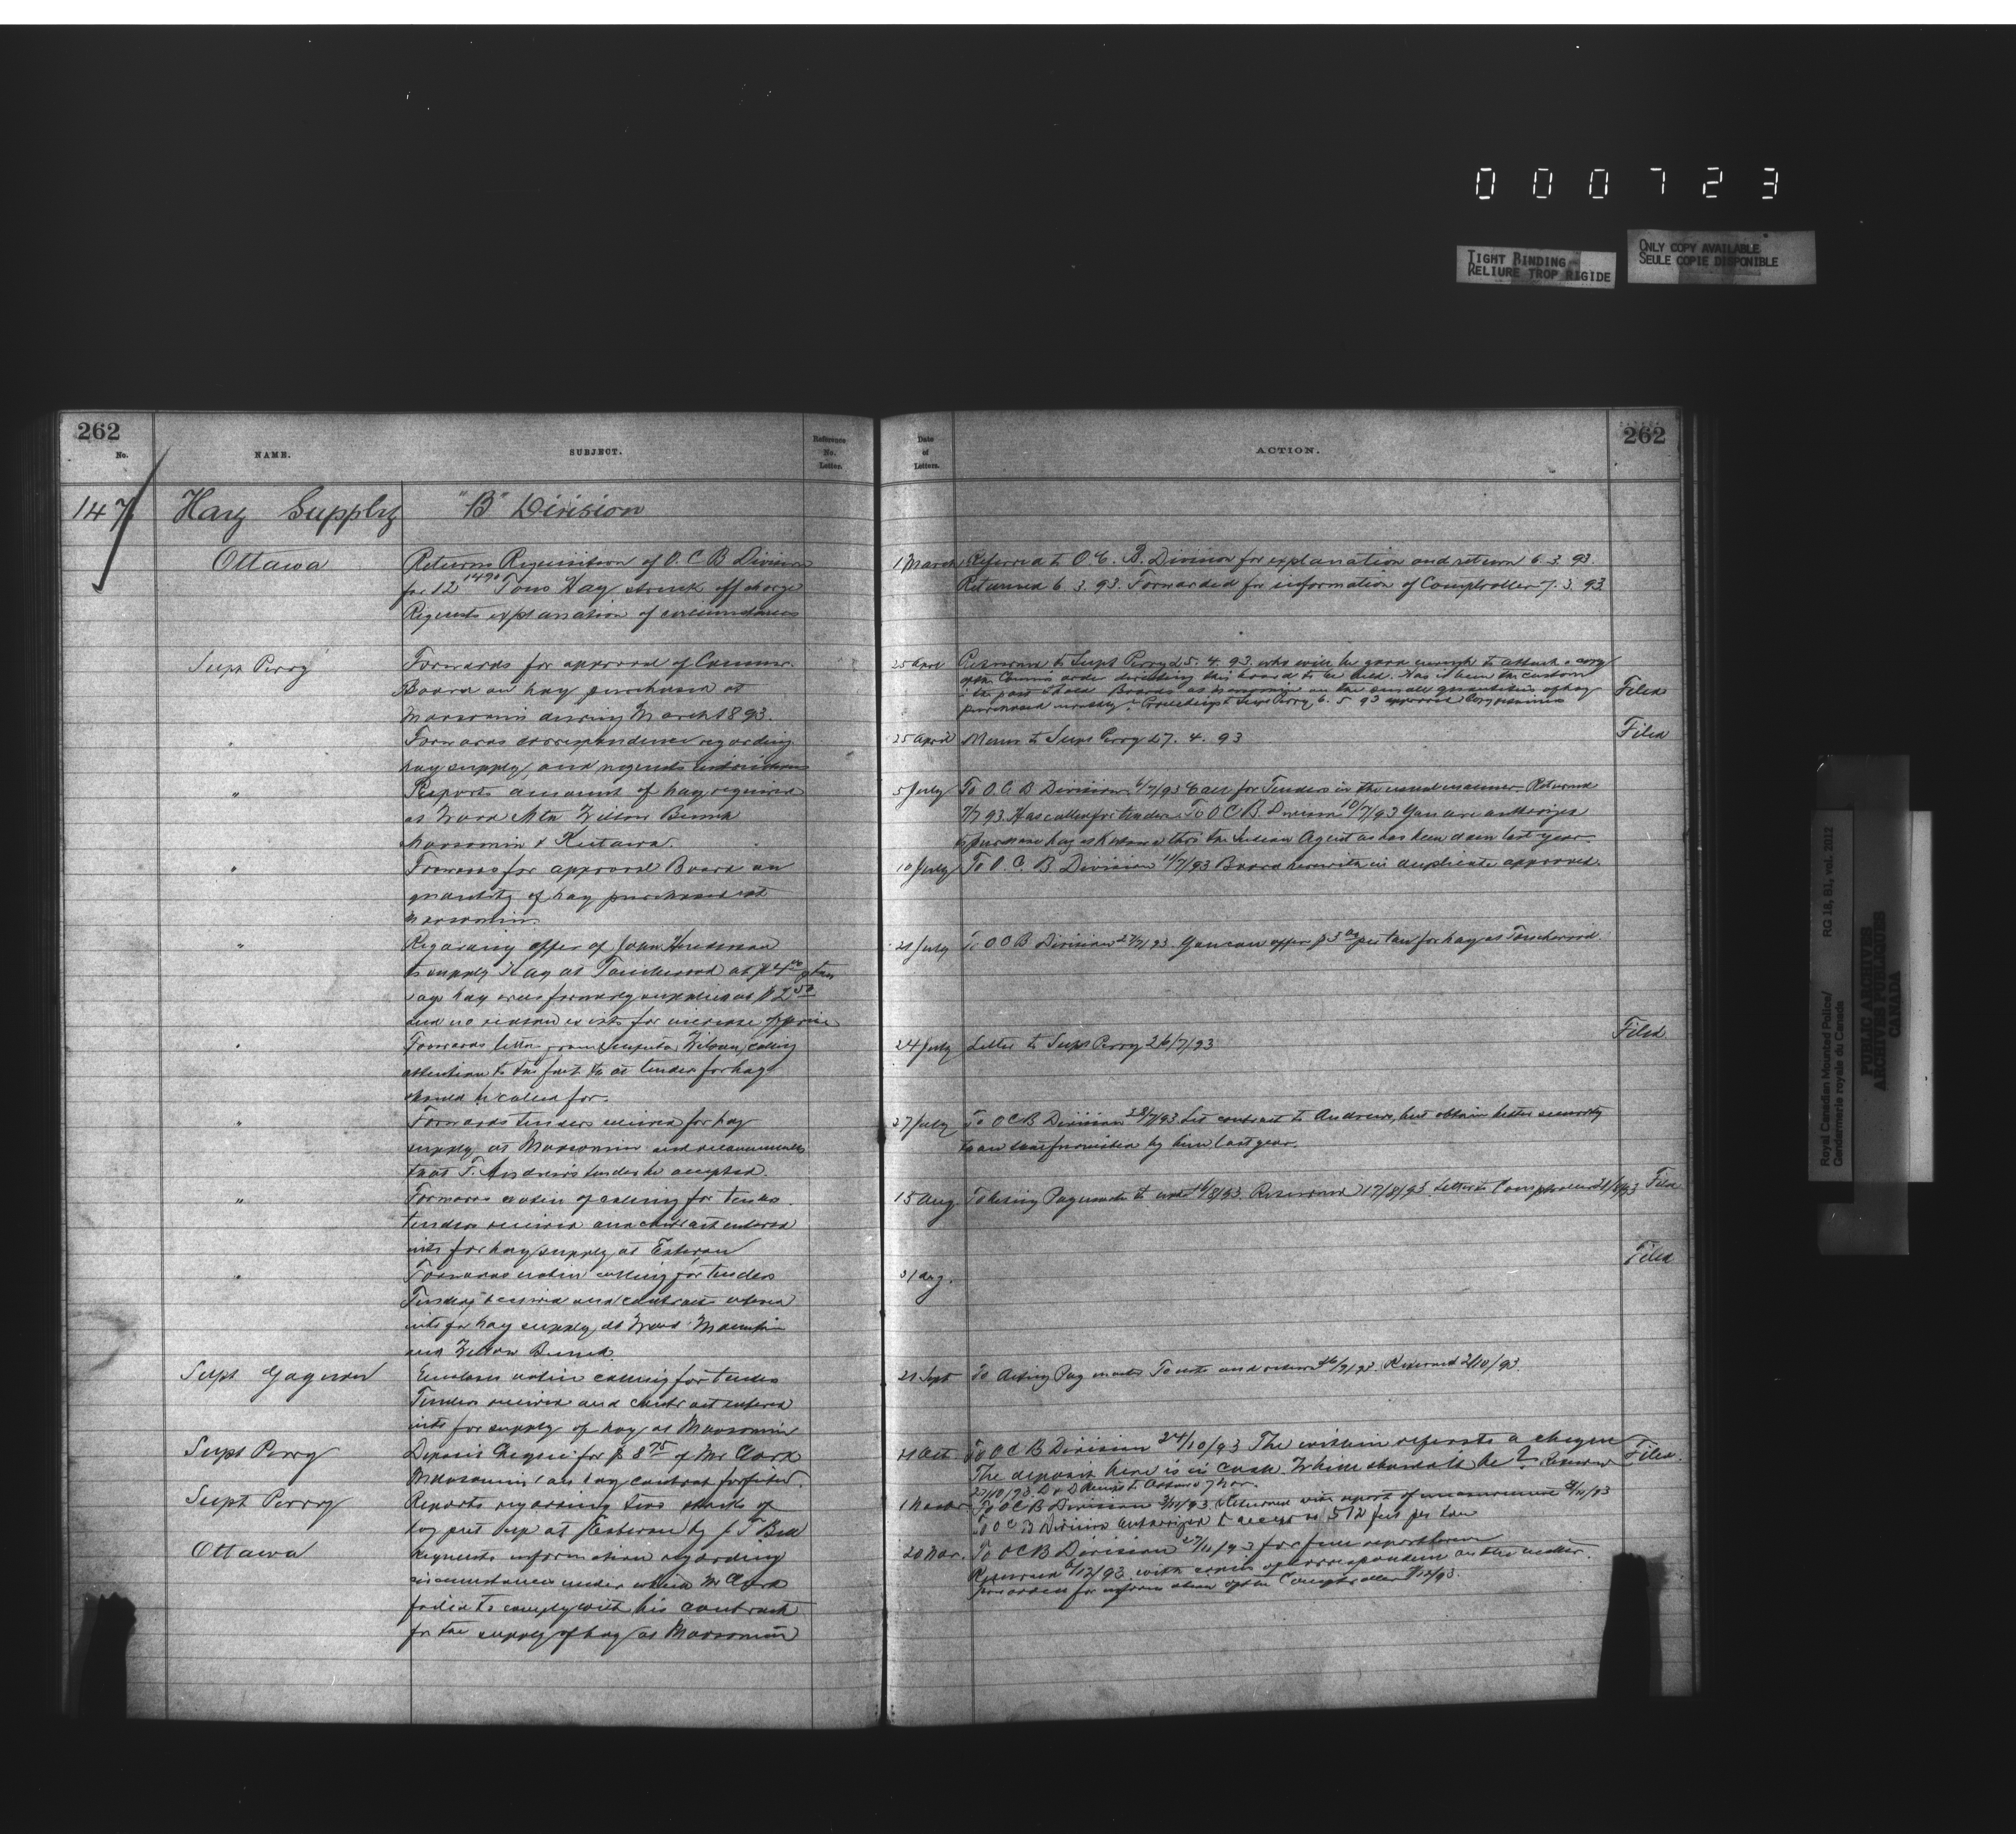 000723
TIGHT BINDING
RELIURE TROP RIGIDE
ONLY COPY AVAILABLE
SEULE COPIE DISPONIBLE
262
No.
NAME.
SUBJECT.
Reference
No.
Letter.
147
Hay Supply
"B" Division
Ottawa
Returns Requisition of O. C B Division
for 12 1490 Tons Hay struck off charge
Requests explanation of circumstances
Supt Perry
Forwards for approval of Commr.
Board on hay purchased at
Moosomin during March 1893.
"
Forwards correspondence regarding
hay supply, and requests instructions
"
Reports amount of hay required
at Wood Mtn Willow Bunch
Moosomin & Kutawa.
"
Forwards for approval Board on
quantity of hay purchased at
Moosomin.
"
Regarding offer of John
to supply Hay at Touchwood at $4 00 p ton
says hay was formerly supplied at $2 50
and no reason exists for increase of price
"
Forwards letter from calling
attention to the fact that tender for hay
should be called for.
"
Forwards tenders received for hay
supply at Moosomin and recommends
that T. Andrews tender be accepted.
"
Forwards notice of calling for tenders
tenders received and contract entered
into for hay supply at Estevan
"
Forwards notice calling for tenders
Tenders received and contracts entered
into for hay supply at Wood Mountain
and Willow Bunch.
Supt Gagnon
Encloses notice calling for tenders
Tenders received and contract entered
into for supply of hay at Moosomin
Supt Perry
Deposit cheque for $ 8 75 of Mr Clark
Moosomin on hay contract forfeited.
Supt Perry
Reports regarding two stacks of
hay put up at Estevan by J. T Bell
Ottawa
Requests information regarding
circumstances under which Mr Clark
failed to comply with his contract
for the supply of hay at Moosomin
262
Date
of
Letters.
ACTION.
1 March Referred to O. C. B. Division for explanation and return 6. 3. 93.
Returned 6. 3. 93. Forwarded for information of Comptroller 7. 3. 93
25 April Returned to Supt Perry 25. 4. 93. who will be good enough to attach a copy
of the Commrs order directing this board to be held. Has it been the custom
in the past to hold Boards on the small quantities of hay
purchased monthly? to Supt Perry 6. 5 93 approved
Filed
25 April Memo to Supt Perry 27. 4. 93
Filed
5 July To O. C B Division 6/7/93 Call for Tenders in the usual manner. Returned
9/7 93. Has called for tenders. To O C B. Division 10/7/93 You are authorized
to purchase hay at Kutawa thro the Indian Agent as has been done last year.
10 July To O. C. B. Division 11/7/93 Board herewith in duplicate approved.
21 July To O C B Division 22/7/93. You can offer $3 per ton for hay at Touchwood
24 July Letter to Supt Perry 26/7/93
Filed
27 July To O C B Division 28/7/93 Let contract to Andrews, but obtain better security
than that furnished by him last year.
15 Aug. To Acting Paymaster to note 16/8/93. Returned 17/8/93. Letter to Comptroller 21/8/93 Filed
31 Aug.
Filed
21 Sept To Acting Paymaster To note and return 26/9/93. Returned 2/10/93.
21 Oct To O C B Division 24/10/93 The within refers to a cheque
The deposit here is in cash. Which should it be? Returned
27/10/93.
Filed.
1 Novbr. To O C B Division 3/11/93. Returned with report of measurement /11/93
To O C B Division Authorized to accept at 512 feet per ton
20 Nov. To O C B Division 27/11/93 for full report hereon
Returned 6/12/93 with copies of correspondence on this matter.
Forwarded for information of the Comptroller 8/12/93.
Royal Canadian Mounted Police/
Gendarmerie royale du Canada
RG 18, B1, vol. 2012
PUBLIC ARCHIVES
ARCHIVES PUBLIQUES
CANADA